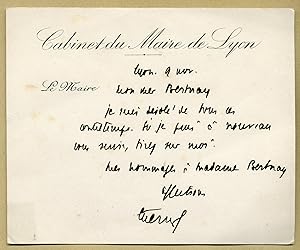 Cabinet du Maire de Lyon
Le Maire
Lyon. 9 nov.
Mon cher Bertnay
je suis désolé de tous ces
contretemps. Si je puis à nouveau
vous servir,
mes hommages à madame Bertnay